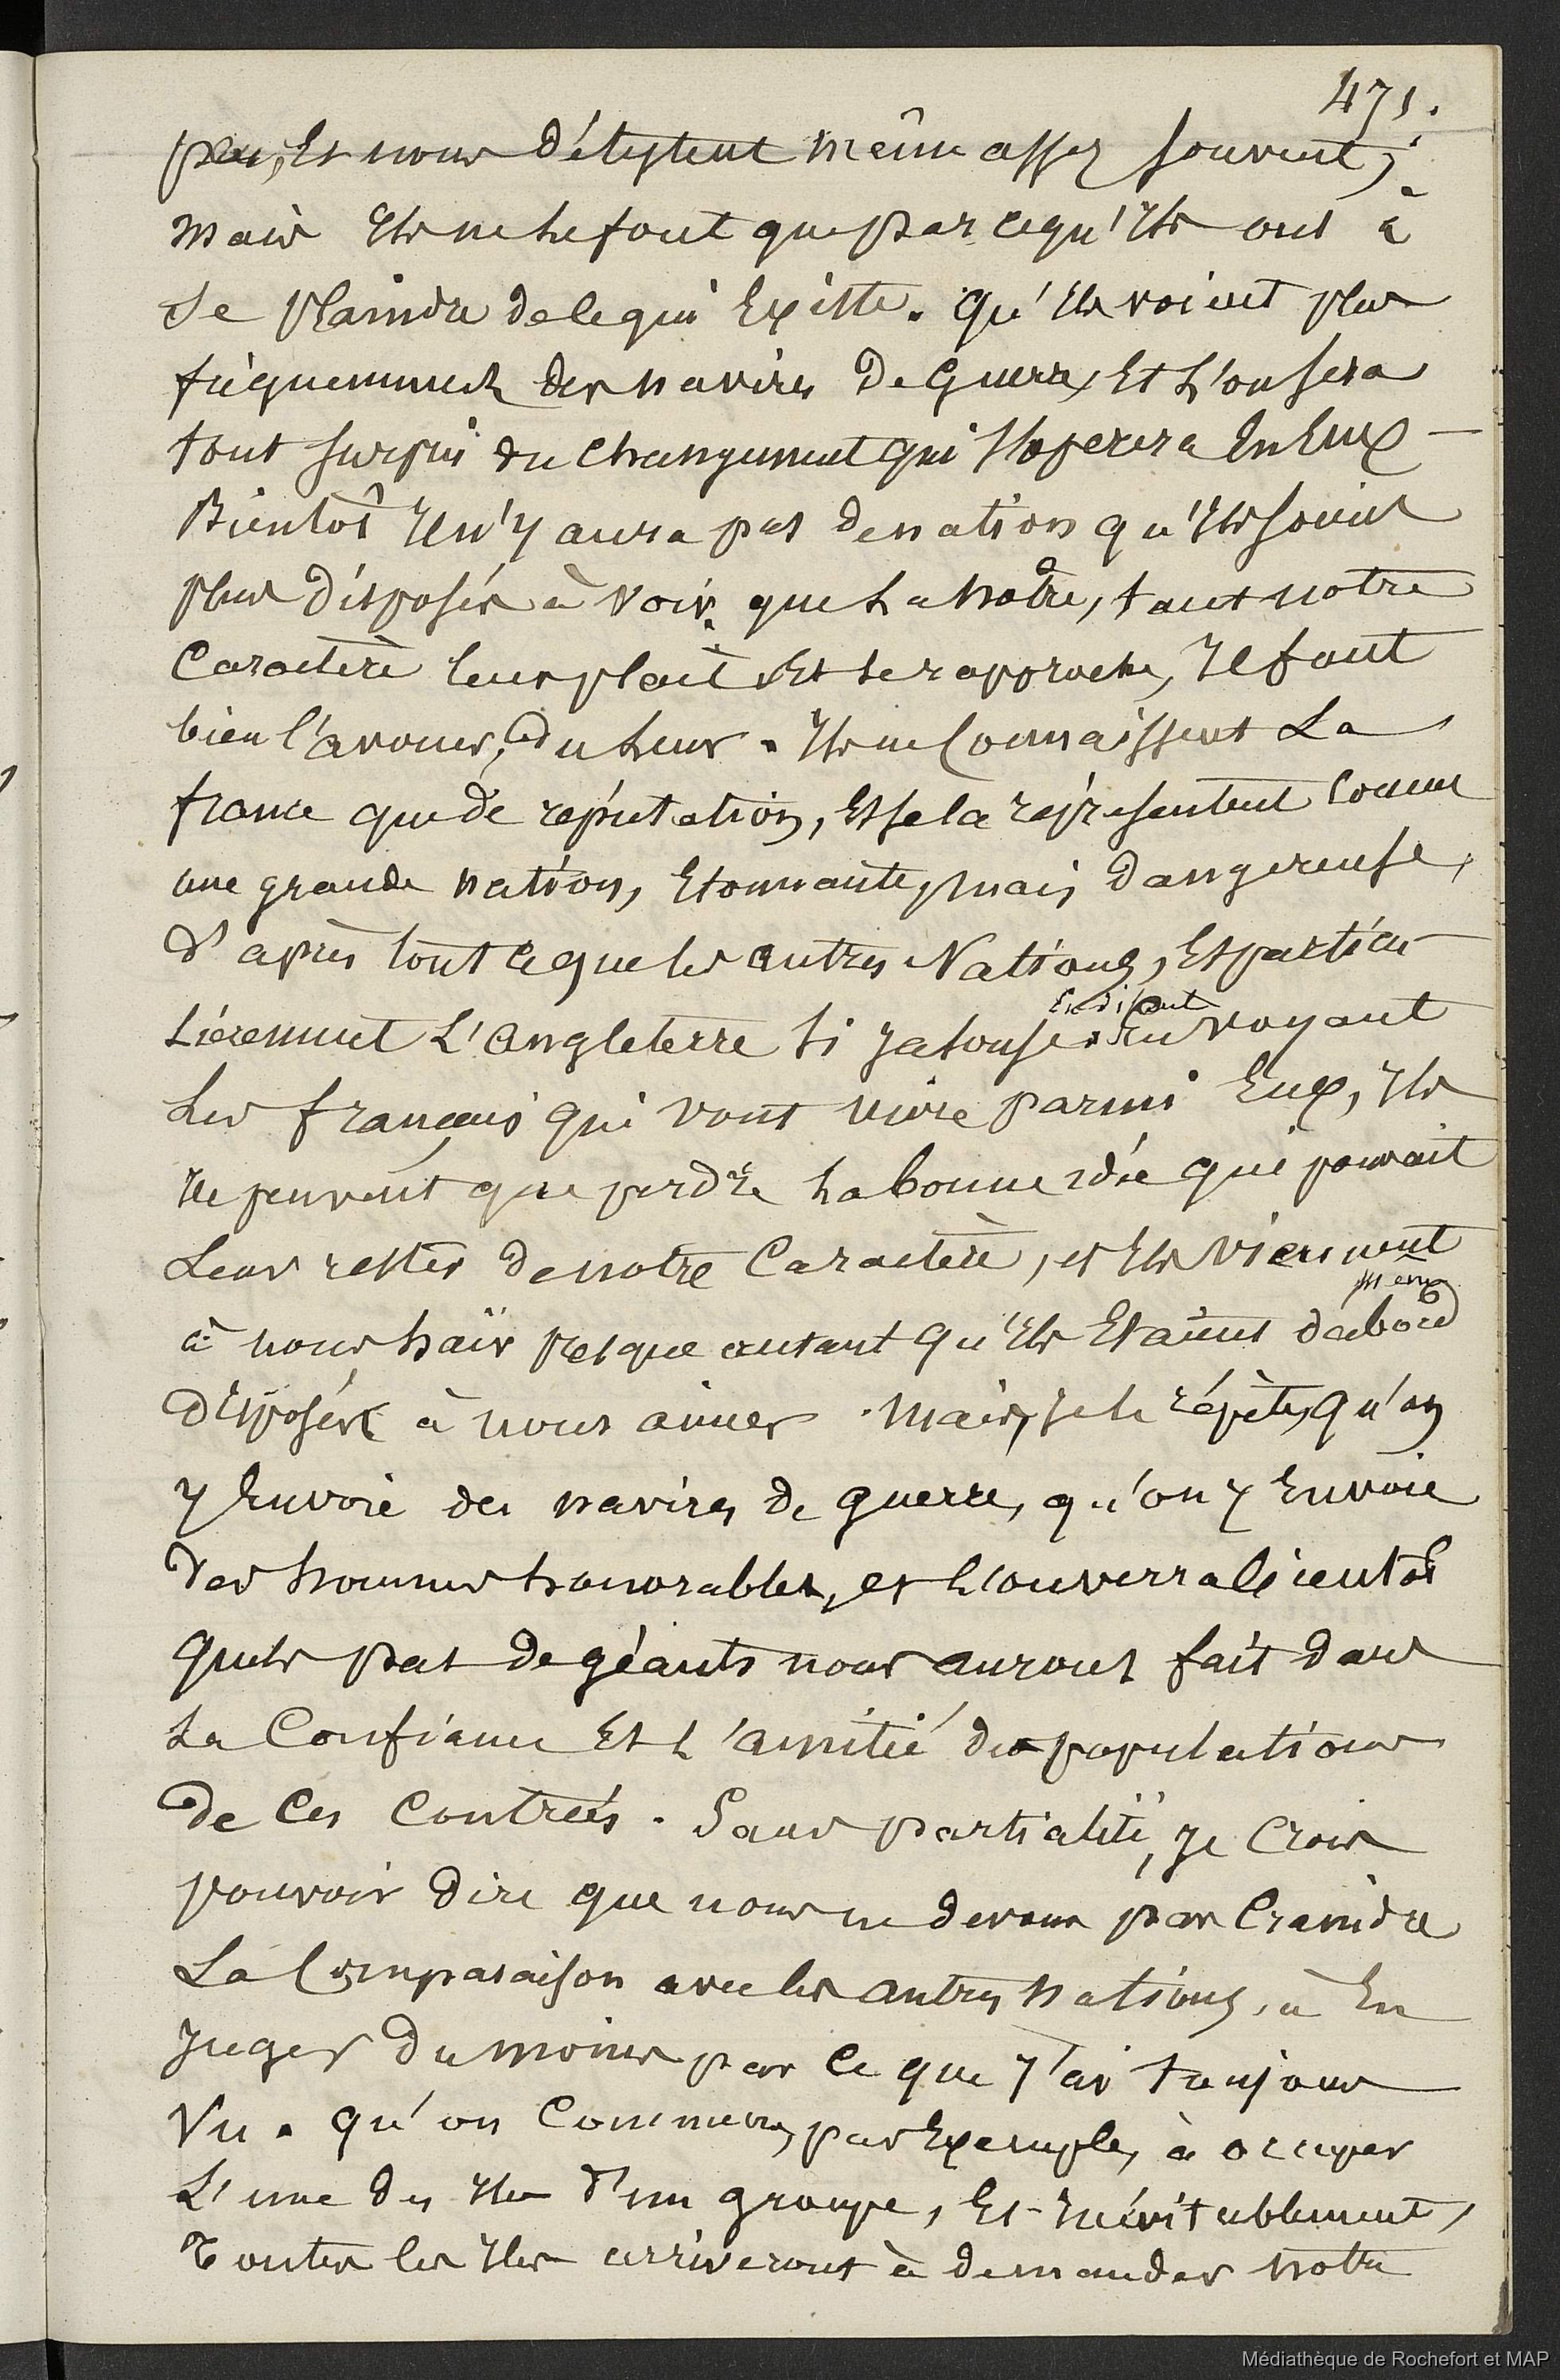 471.
peu, Et nous détestent même assez souvent;
mais Ils ne le font que parcequ'Ils ont à
se plaindre de ce qui Existe. qu'Ils voient plus
fréquemment des navires de Guerre, Et L'on sera
tout surpris du changement qui s'opérera En Eux —
Bientôt Il n'y aura pas de nation qu'Ils soient
plus disposés à voir que La notre, tant notre
Caractère leur plait Et se rapproche, Il faut
bien l'avouer, du Leur. Ils ne Connaissent La
france que de réputation, Et se la représentent Comme
une grande nation, Etonnante, mais dangereuse,
d'après tout ce que les autres Nations, Et particu
Lièrement L'Angleterre si Jalouse,
En disent
En voyant
Les français qui vont vivre parmi Eux, Ils
ne peuvent que perdre La bonne idée qui pouvait
Leur rester de notre Caractère, et Ils viennent
même
à nous haïr presque autant qu'Ils Etaient dabord
disposés à nous aimer. Mais, je le répète, qu'on
y Envoie des navires de guerre, qu'on y Envoie
des hommes honorables, et L'on verra bientôt
quels pas de géants nous aurons fait dans
La Confiance Et L'amitié des populations
de Ces Contrées. Sans partialité, Je Crois
pouvoir dire que nous ne devons pas Craindre
La Comparaison avec les autres nations, à En
Juger du moins par Ce que J'ai toujours
Vu. qu'on Commence, par Exemple, à occuper
L'une des Iles d'un groupe, Et Inévitablement,
Toutes les Iles arriveront à demander notre
Médiathèque de Rochefort et MAP